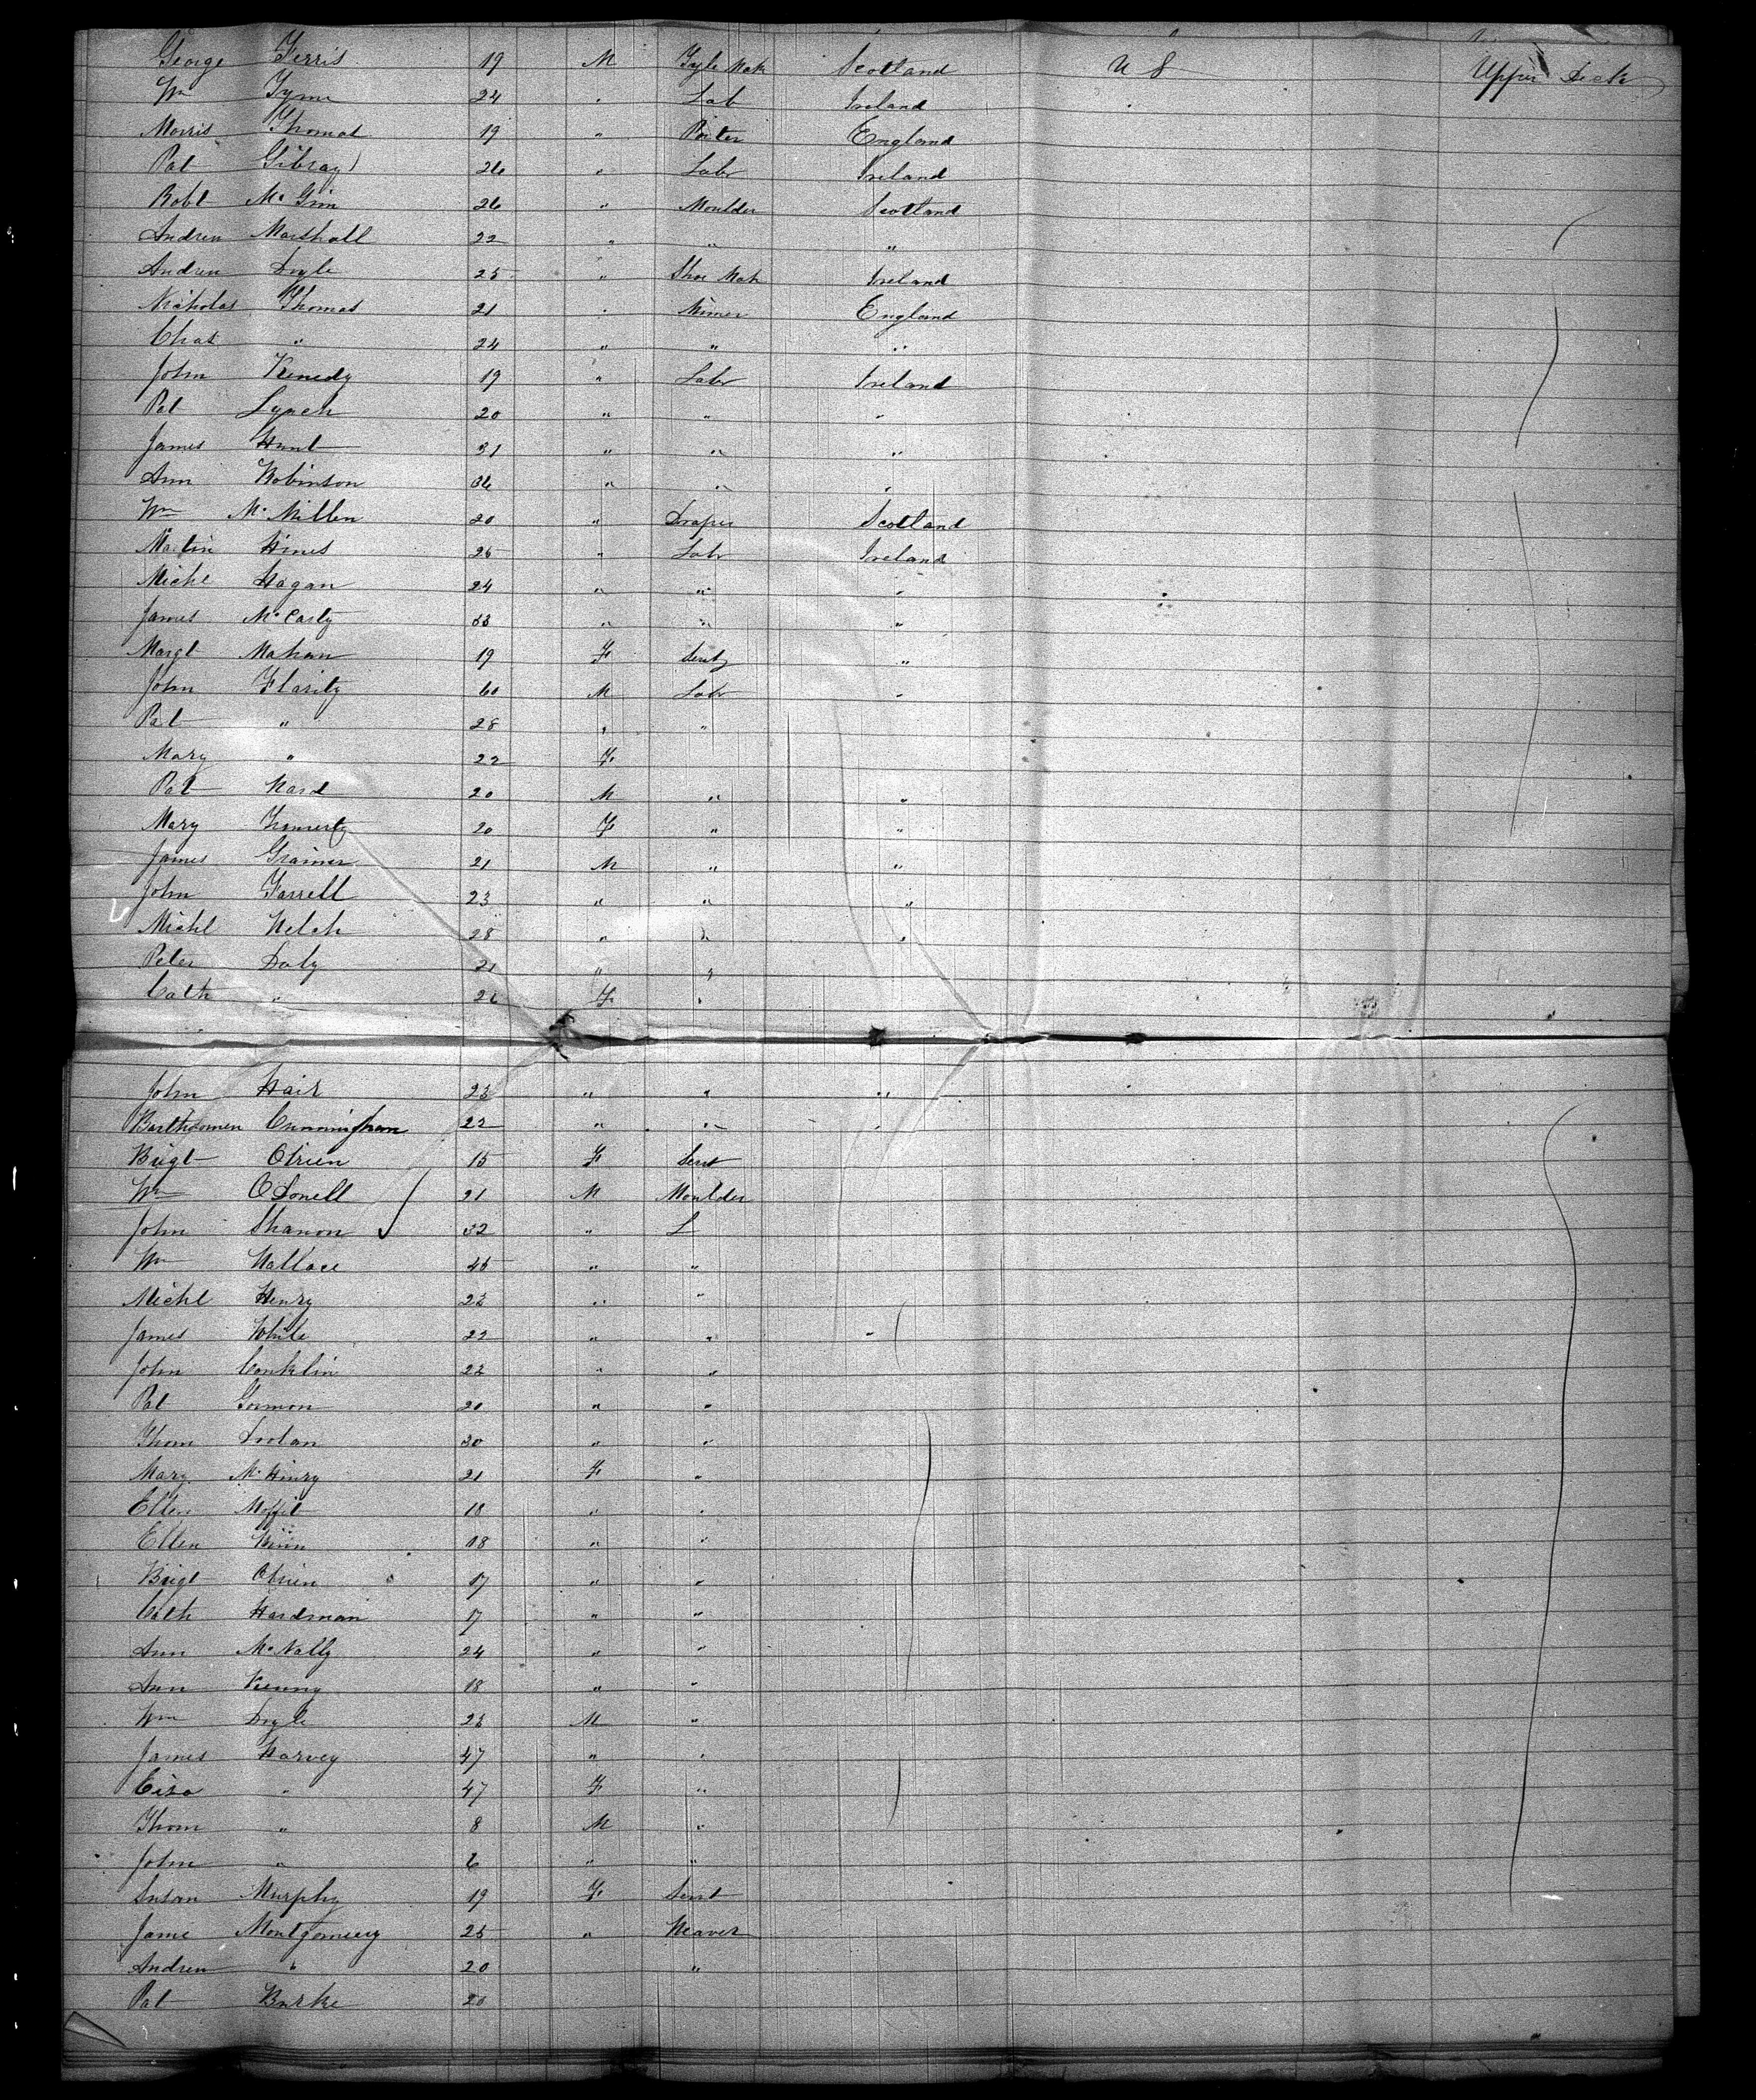 George Ferris 19 M Tyle Mak Scotland U S Upper Deck
Wm 24 " Lab Ireland
Morris Thomas 19 " Porter England
Pat Gibray 26 " Labr Ireland
Robt Mc Gim 26 " Moulder Scotland
Andrew Marshall 22 " " "
Andrew Doyle 25 " Shoe Mak Ireland
Nicholas Thomas 21 " Miner England
Chas " 24 " " "
John Kenedy 19 " Labr Ireland
Pat Lynch 20 " " "
James Hunt 31 " " "
Ann Robinson 36 " " "
Wm Mc Millen 20 " Draper Scotland
Martin Hines 25 " Labr Ireland
Michl Hagan 24 " " "
James Mc Carty 33 " " "
Margt Mahan 19 F "
John Flarity 60 M Labr "
Pat " 28 " "
Mary " 22 F
Pat Ward 20 M " "
Mary 20 F " "
James Grainer 21 M " "
John Farrell 23 " " "
Michl Welch 28 " " "
Peter Daly 21 " "
Cath " F "
John Hair 23 " " "
Bartholomew Cunningham 22 " " "
Brigt Obrien 15 F Sert
Wm O Donell 21 M Moulder
John Shanon 32 " L
Wm Wallace 45 " "
Michl Henry 22 " "
James White 22 " " "
John Conklin 22 " "
Pat Gormon 20 " "
Thom Dolan 20 " "
Mary Mc Henry 21 F "
Ellen Moffit 18 " "
Ellen 18 " "
Brigt Obrien 17 " "
Cath Hardman 17 " "
Ann Mc Nally 24 " "
Ann Kenny 18 " "
Wm Doyle 23 M "
James Harvey 47 " "
Eliza " 47 F "
Thom " 8 M "
John " 6 " "
Susan Murphy 19 F Sert
Jame Montgomery 25 " Weaver
Andrew " 20 "
Pat Burke 20